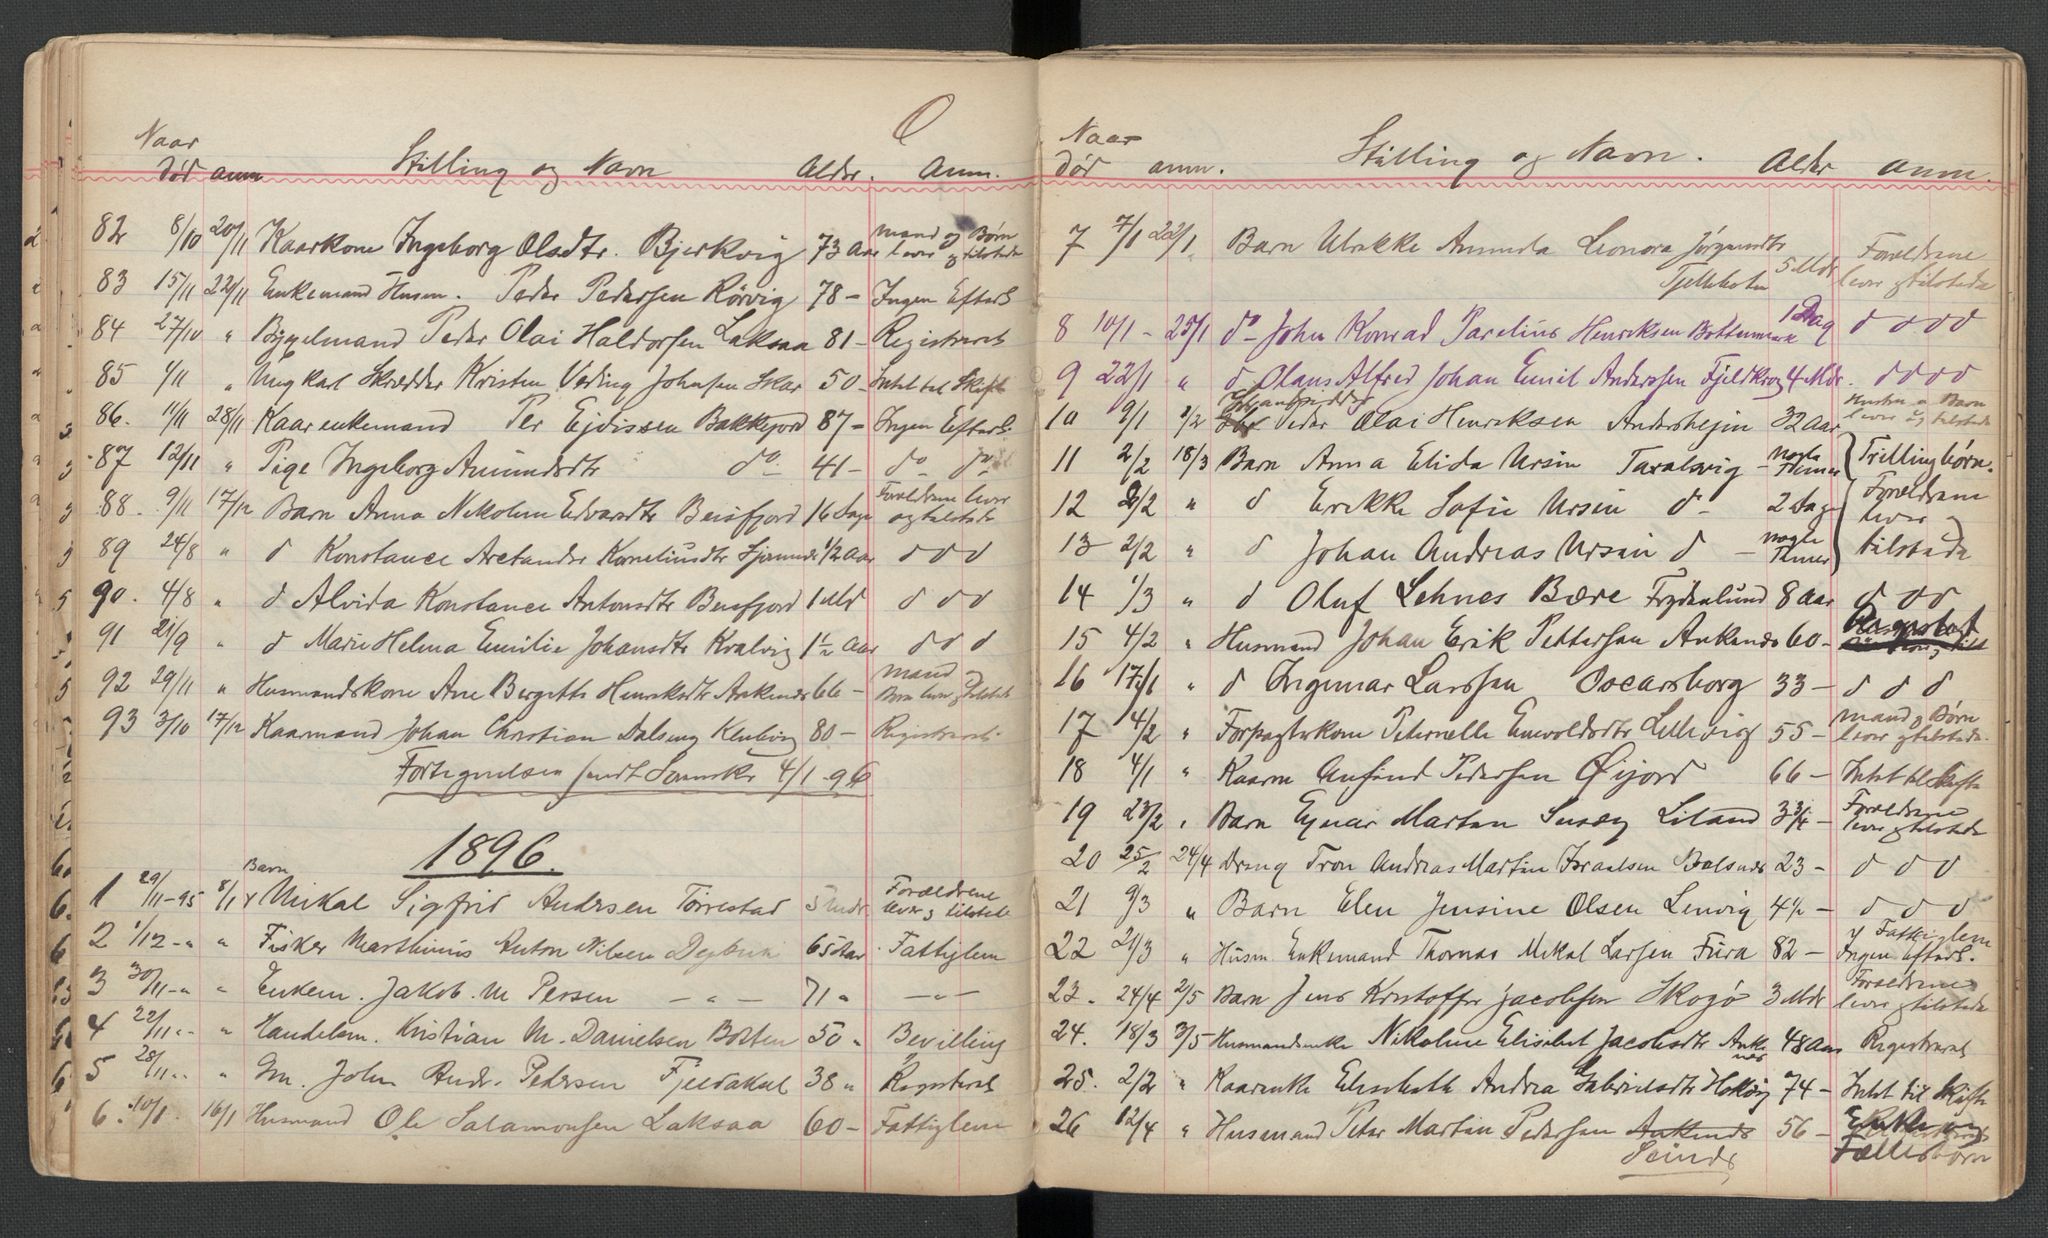 Naar
död anm Stilling og Navn Alder. Anm.
82 8/10 20/11 Kaarkone Ingeborg Olsdtr. Bjerkvig 73 Aar mand og Børn lever og tilstede
83 15/11 22/11 Enkemand Husm. Peder Pedersen Rörvig 78 – Ingen Efterl
84 27/10 " Bygselmand Peder Olai Haldorsen Laksaa 81 – Registreret
85 1/11 " Ungkarl Skrædder Kristen Johnsen Skar 50 – Intet til Skifte
86. 11/11 28/11 Kaarenkemand Per Ejdissen Bakkejord 87 – Ingen Efterl.
87 12/11 " Pige Ingeborg Amundsdtr do 41 – do do
88. 9/11 17/12 Barn Anna Nikoline Edvardtr Beisfjord 16 Dage Forældrene lever og tilstede
89 24/8 " d Konstance Korneliusdtr 1/2 Aar d d d
90. 4/8 " d Alvida Konstance Antonsdtr Beisfjord 1 Md d d d
91 21/9 " d Marie Helma Emilie Johansdtr Kvalvig 1½ Aar d d d
92 29/11 " Husmandskone Ane Bergitte Henriksdtr Ankenæs 66 – mand Børn lever og tilstede
93 3/10 17/12 Kaarmand Johan Christian Dalseng 80 – Registreret
Fortegnelsen sendt Sorenskr 4/1 - 96
1896.
Barn
1 29/11-95 8/1 Mikal Sigfrid Andersen Törrestad 5 Mdr Forældrene lever og tilstede
2 1/12 - " " Fisker Marthinus Anton Nilsen 65 Aar Fattiglem
3 30/11 - " " Enkem. Jakob. M Persen – " – 71 " – " –
4 22/11 - " " Handelsm. Kristian M. Danielsen Bolten 50 " Bevilling
5 28/11 " " Gm. John Andr. Pedersen Fjeldakel 38 " Registreret
6. 10/1. 16/1 Husmand Ole Salamonsen Laksaa 60 – Fattiglem
Naar
död anm. Stilling og Navn. Alder anm.
7 7/1 22/1 Barn Ulrikke Amunda Leonora Jörgensdtr
Tjelleholm 5 Mdr Forældrene lever og tilstede
8 10/1 – 25/1 do John Konrad Parelius Henriksen Bottenmark 1 Dag d d d d
9 22/1 " d Olaus Alfred Johan Emil Anderssen Fjeldkrog 4 Mdr. d d d d
10 9/1 1/2 Peder Olai Henriksen 32 Aar Hustru og Barn lever og tilstede
11 2/2 18/3 Barn Anna Elida Ursin Taralsvig – nogle Timer Trillingbørn.
12 2/2 " d Erikke Sofie Ursin d – 2 Dage Forældrene lever og
13 2/2 " d Johan Andreas Ursin d – nogle Timer tilstede
14 1/3 " d Oluf Lehnes Bære Frydenlund 8 Aar d d d
15 4/2 " Husmand Johan Erik Pettersen Ankenæs 60 –
16 17/1 " d Ingemar Larssen Oscarsborg 33 – d d d
17 4/2 " Forpagterkone Peternelle Enevoldsdtr Lillevig 55 – mand og Børn lever og tilstede.
18 4/1 " Kaarm Anfind Pedersen Öijord 66 – Intet til Skifte
19 23/2 " Barn Ejnar Martin Liland 3 3/4 – Forældrene lever og tilstede
20 25/2 24/4 Dreng Tron Andreas Martin Israelsen 23 – d d d
21 9/3 " Barn Elen Jensine Olsen Lenvig 4½ – d d d
22 21/3 " Husm. Enkemand Thomas Mikal Larsen Fura 82 – Fattiglem Ingen Efterl.
23. 24/4 2/5 Barn Jens Kristoffer Jacobsen Skogö 3 Mdr Forældrene lever og tilstede
24. 18/3 3/5 Husmandsenke Nikoline Elisabet Jacobsdtr Ankenæs 48 Aar Registreret
25. 2/2 " Kaarenke Elisabeth Andrea Gabrielsdtr 74 – Intet til Skifte
26 12/4 " Husmand Peter Martin Pedersen Ankenæs 56 – Enke og
Seines Fællesbörn